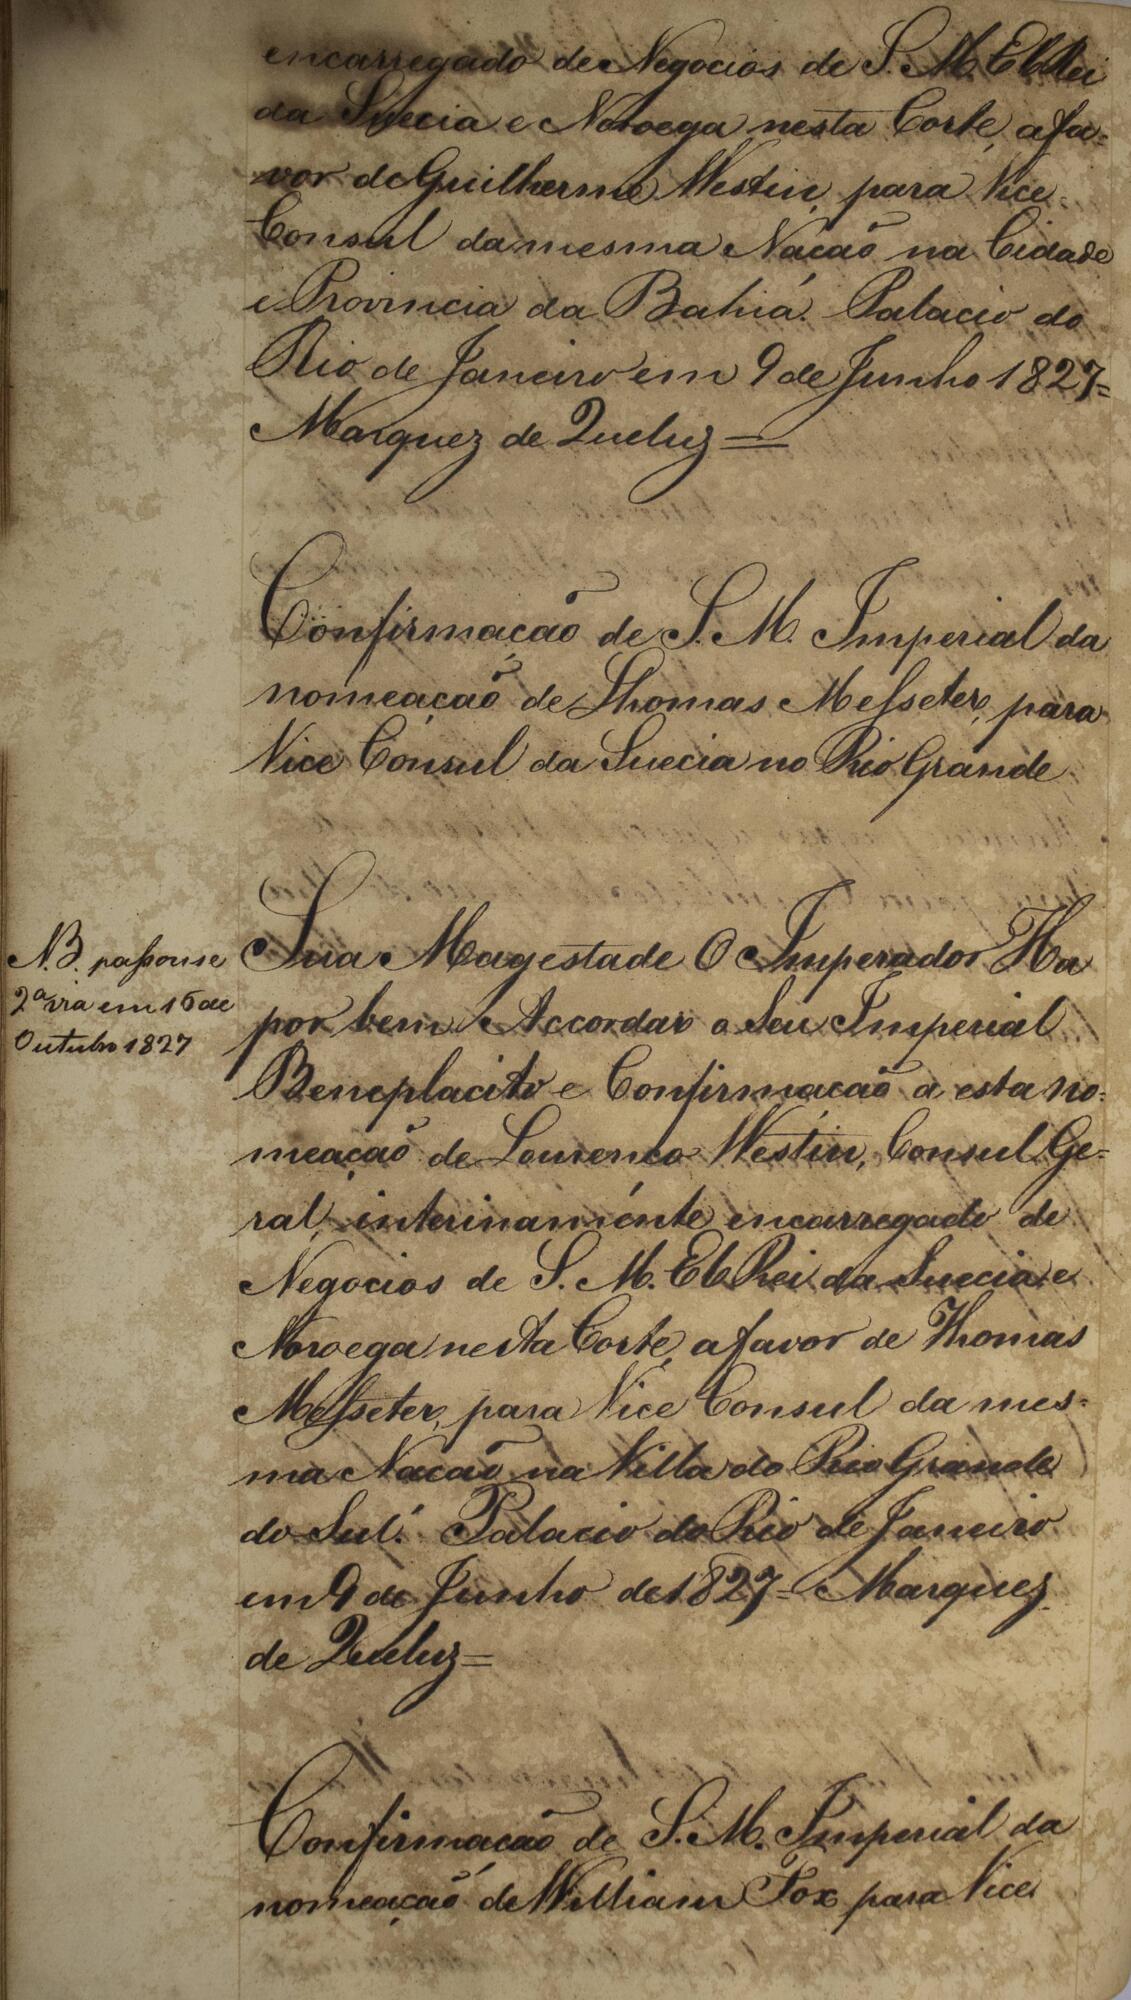 encarregado de Negocios de S. M. ElRei
da Suecia e Noroega nesta Corte, a fa-
vor de Guilherme Westin, para Vice
Consul da mesma Nacaõ na Cidade
e Provincia da Bahia. Palacio do
Rio de Janeiro em 9 de Junho 1827=
Marquez de Queluz=
Confirmacaõ de S. M. Imperial da
nomeaçaõ de Thomas Messeter, para
Vice Consul da Suecia no Rio Grande
N.B. passouse
2ª via em 16 de
Outubro 1827
Sua Magestade O Imperador Ha
por bem Accordar o Seu Imperial
Beneplacito e Confirmacaõ a esta no-
meaçaõ de Lourenco Westin, Consul Ge-
ral, interinamente encarregado de
Negocios de S. M. ElRei da Suecia e
Noroega nesta Corte, a favor de Thomas
Messeter, para Vice Consul da mes-
ma Nacaõ na Villa do Rio Grande
do Sul. Palacio do Rio de Janeiro
em 9 de Junho de 1827= Marquez
de Queluz=
Confirmacaõ de S. M. Imperial da
nomeaçaõ de William Fox para Vice